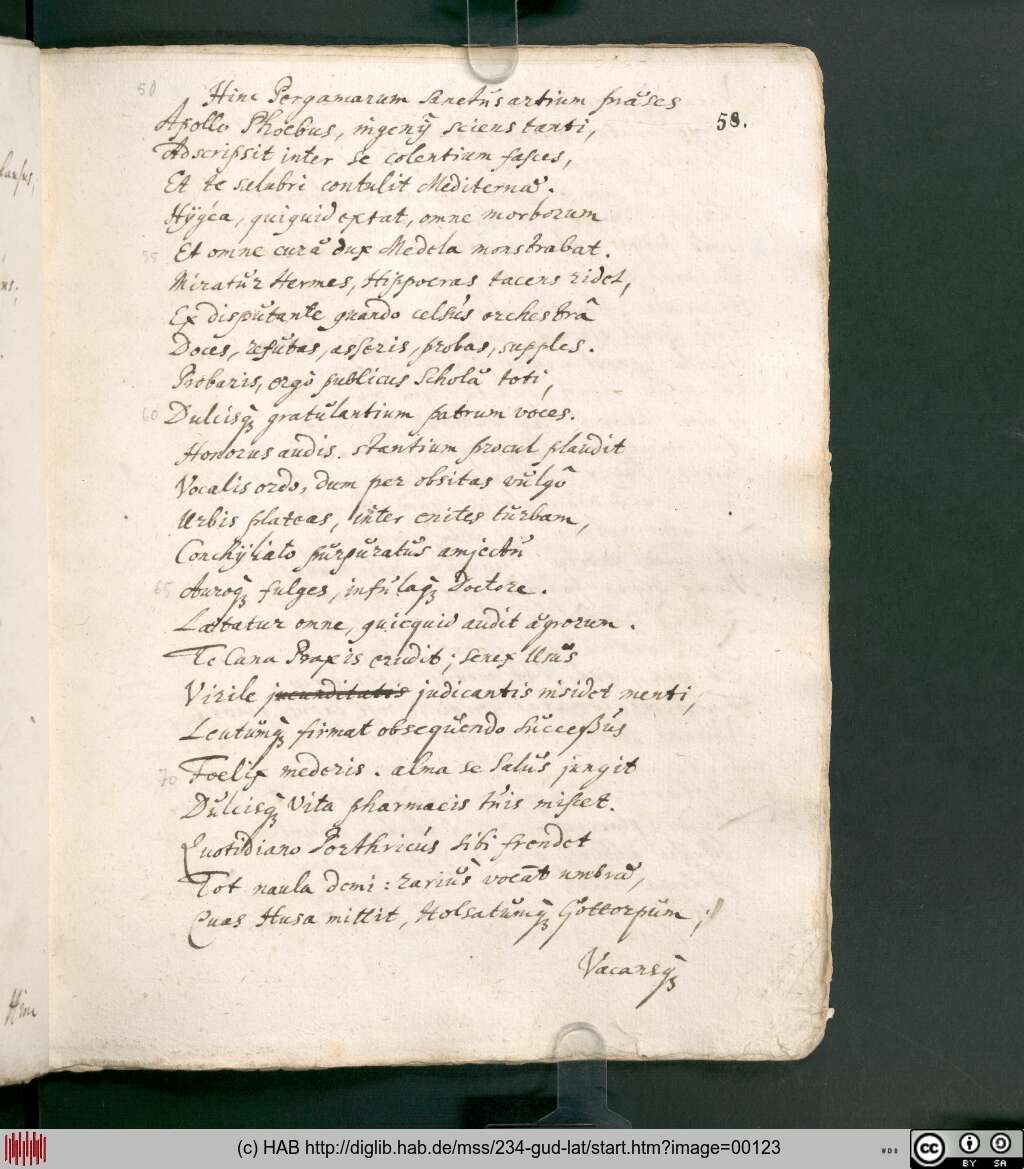 50
Hinc Pergamarum sanctus artium præses
58.
Apollo Phoebus, ingenij sciens tanti,
Adscripsit inter se colentium fasces,
Et te salubri contulit Mediternæ.
Hÿgéa, quiquid extat, omne morborum
55 Et omne curæ dux Medela monstrabat.
Miratur Hermes, Hippocras tacens ridet,
Ex disputante quando celsus orchestrâ
Doces, refutas, asseris, probas, supples.
Probaris, ergò publicus Scholæ toti,
60 Dulcisq; gratulantium patrum voces.
Honorus audis. stantium procul plaudit
Vocalis ordo, dum per obsitas vulgô
Urbis plateas, inter enites turbam,
Conchÿliato purpuratus amjectu
65 Auroq; fulges, infulaq; Doctore.
Lætatur omne, quicquid audit ægrorum.
Te Cana Praxis erudit; senex Usus
Virile jucunditatis judicantis insidet menti,
Leutumq; firmat obsequendo successus
70 Foelix mederis. alma se Salus jungit
Dulcisq; Vita pharmacis tuis miscet.
Quotidiano Porthricus sibi frendet
Tot naula demi: rarius vocāt umbræ,
Quas Husa mittit, Holsatumq; Gottorpum;
Vacarsq;
Hinc
(c) HAB http://diglib.hab.de/mss/234-gud-lat/start.htm?image=00123
cc BY SA